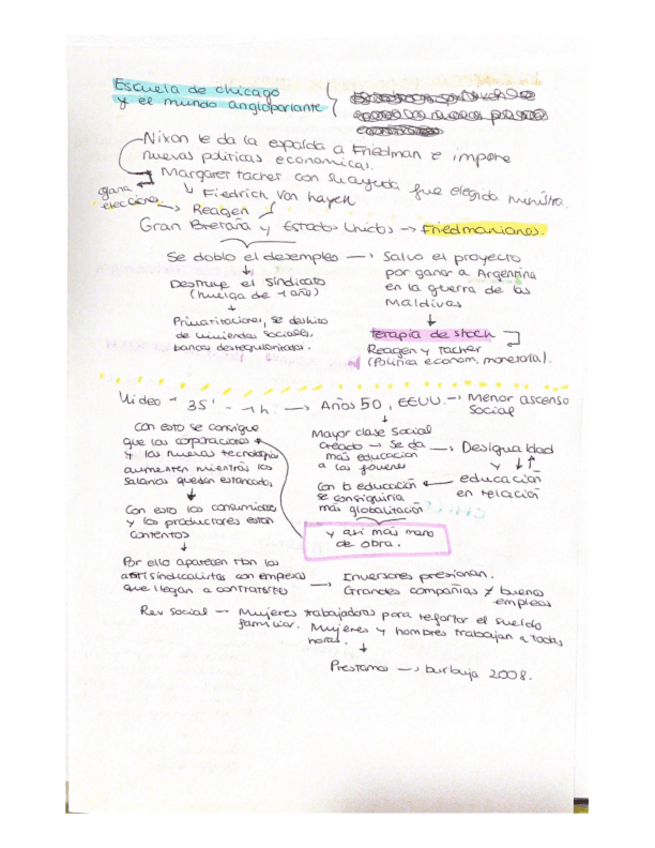 Escuela de chicago
y el mundo angloparlante
Nixon le da la espalda a Friedman e impone
nuevas politicas economicas.
Margaret tacher con su ayuda fue elegida ministra.
gana
elecciones
Fiedrich Von hayek
Reagen
Gran Bretaña y Estados Unidos → Friedmanianos.
Se doblo el desempleo → Salvo el proyecto
por ganar a Argentina
en la guerra de las
Maldivas
Destruye el sindicato
(huelga de 1 año)
↓
Privatizaciones, se deshizo
de viviendas sociales,
bancos desregularizados.
↓
terapia de stock
Reagen y Tacher
(Política econom. monetaria).
Video - 35' - 1h → Años 50, EEUU. → Menor ascenso
social
Con esto se consigue
que las corporaciones
y las nuevas tecnologias
aumenten mientras los
salarios quedan estancados,
↓
Con esto los consumidores
y los productores estan
contentos
↓
Mayor clase social
creado → se da
más educación
a los jovenes
→ Desigualdad
y ↓↑
educación
en relación
Con la educación ←
se consiguiria
más globalitación
y asi más mano
de obra.
Por ello aparecen
sindicalistas con empresas
que llegan a contratarte
→ Inversores presionan.
Grandes compañias ≠ buenos
empleos
Rev social → Mujeres trabajadoras para refortar el sueldo
familiar. Mujeres y hombres trabajan a todas
horas.
↓
Prestamos → burbuja 2008.